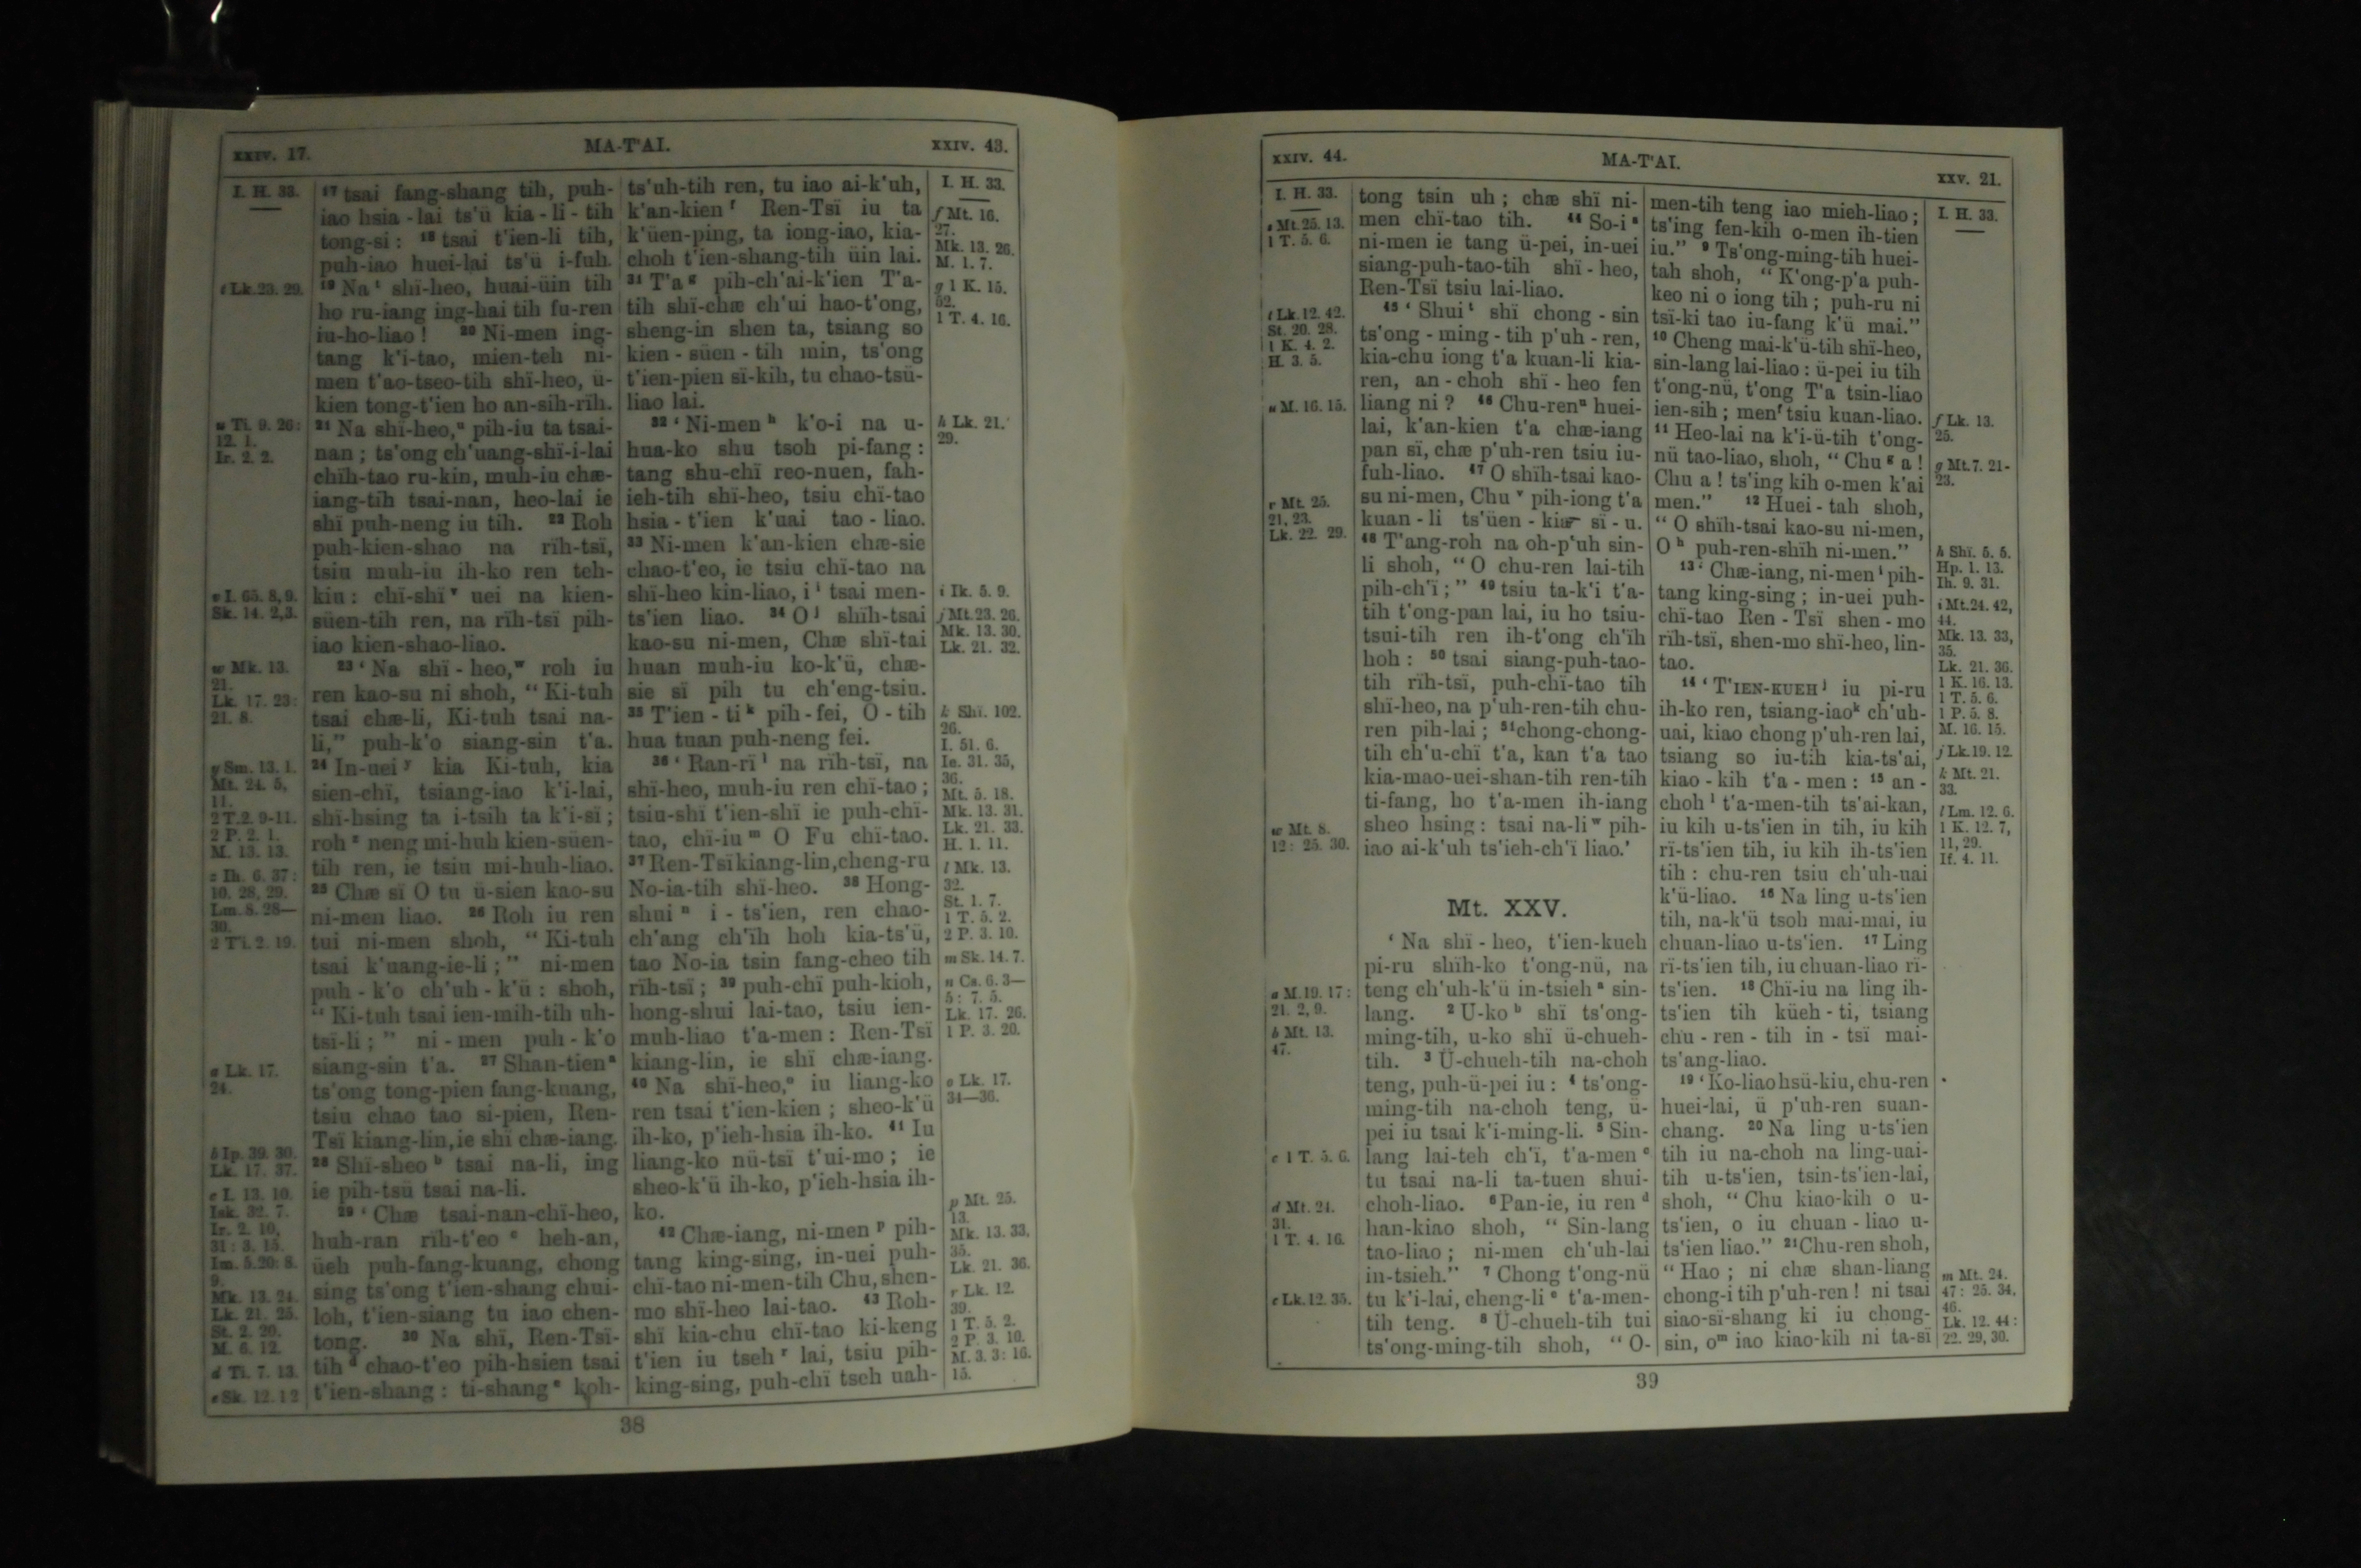 XXIV. 17.
MA-T'AI.
XXIV. 43.
I. H. 33.
t Lk. 23. 29.
u Ti. 9. 26:
12. 1.
Ir. 2. 2.
v I. 65. 8, 9.
Sk. 14. 2,3.
w Mk. 13.
21.
Lk. 17. 23:
21. 8.
y Sm. 13. 1.
Mt. 24. 5,
11.
2 T. 2. 9-11.
2 P. 2. 1.
M. 13. 13.
z Ih. 6. 37:
10. 28, 29.
Lm. 8. 28—
30.
2 Ti. 2. 19.
a Lk. 17.
24.
b Ip. 39. 30.
Lk. 17. 37.
c I. 13. 10.
Isk. 32. 7.
Ir. 2. 10,
31: 3. 15.
Im. 5.20: 8.
9.
Mk. 13. 24.
Lk. 21. 25.
St. 2. 20.
M. 6. 12.
d Ti. 7. 13.
e Sk. 12. 12
17 tsai fang-shang tih, puh-
iao hsia-lai ts'ü kia-li-tih
tong-si: 18 tsai t'ien-li tih,
puh-iao huei-lai ts'ü i-fuh.
19 Na t shï-heo, huai-üin tih
ho ru-iang ing-hai tih fu-ren
iu-ho-liao! 20 Ni-men ing-
tang k'i-tao, mien-teh ni-
men t'ao-tseo-tih shï-heo, ü-
kien tong-t'ien ho an-sih-rïh.
21 Na shï-heo, u pih-iu ta tsai-
nan; ts'ong ch'uang-shï-i-lai
chïh-tao ru-kin, muh-iu chæ-
iang-tih tsai-nan, heo-lai ie
shï puh-neng iu tih. 22 Roh
puh-kien-shao na rïh-tsï,
tsiu muh-iu ih-ko ren teh-
kiu: chï-shï v uei na kien-
süen-tih ren, na rïh-tsï pih-
iao kien-shao-liao.
23 ‘ Na shï-heo, w roh iu
ren kao-su ni shoh, “ Ki-tuh
tsai chæ-li, Ki-tuh tsai na-
li,” puh-k'o siang-sin t'a.
24 In-uei y kia Ki-tuh, kia
sien-chï, tsiang-iao k'i-lai,
shï-hsing ta i-tsih ta k'i-sï;
roh z neng mi-huh kien-süen-
tih ren, ie tsiu mi-huh-liao.
25 Chæ sï O tu ü-sien kao-su
ni-men liao. 26 Roh iu ren
tui ni-men shoh, “ Ki-tuh
tsai k'uang-ie-li;” ni-men
puh-k'o ch'uh-k'ü: shoh,
“ Ki-tuh tsai ien-mih-tih uh-
tsï-li;” ni-men puh-k'o
siang-sin t'a. 27 Shan-tien a
ts'ong tong-pien fang-kuang,
tsiu chao tao si-pien, Ren-
Tsï kiang-lin, ie shï chæ-iang.
28 Shï-sheo b tsai na-li, ing
ie pih-tsü tsai na-li.
29 ‘ Chæ tsai-nan-chï-heo,
huh-ran rïh-t'eo c heh-an,
üeh puh-fang-kuang, chong
sing ts'ong t'ien-shang chui-
loh, t'ien-siang tu iao chen-
tong. 30 Na shï, Ren-Tsï-
tih d chao-t'eo pih-hsien tsai
t'ien-shang: ti-shang e koh-
ts'uh-tih ren, tu iao ai-k'uh,
k'an-kien f Ren-Tsï iu ta
k'üen-ping, ta iong-iao, kia-
choh t'ien-shang-tih üin lai.
31 T'a g pih-ch'ai-k'ien T'a-
tih shï-chæ ch'ui hao-t'ong,
sheng-in shen ta, tsiang so
kien-süen-tih min, ts'ong
t'ien-pien sï-kih, tu chao-tsü-
liao lai.
32 ‘ Ni-men h k'o-i na u-
hua-ko shu tsoh pi-fang:
tang shu-chï reo-nuen, fah-
ieh-tih shï-heo, tsiu chï-tao
hsia-t'ien k'uai tao-liao.
33 Ni-men k'an-kien chæ-sie
chao-t'eo, ie tsiu chï-tao na
shï-heo kin-liao, i i tsai men-
ts'ien liao. 34 O j shïh-tsai
kao-su ni-men, Chæ shï-tai
huan muh-iu ko-k'ü, chæ-
sie sï pih tu ch'eng-tsiu.
35 T'ien-ti k pih-fei, O-tih
hua tuan puh-neng fei.
36 ‘ Ran-rï l na rïh-tsï, na
shï-heo, muh-iu ren chï-tao;
tsiu-shï t'ien-shï ie puh-chï-
tao, chï-iu m O Fu chï-tao.
37 Ren-Tsï kiang-lin, cheng-ru
No-ia-tih shï-heo. 38 Hong-
shui n i-ts'ien, ren chao-
ch'ang ch'ïh hoh kia-ts'ü,
tao No-ia tsin fang-cheo tih
rïh-tsï; 39 puh-chï puh-kioh,
hong-shui lai-tao, tsiu ien-
muh-liao t'a-men: Ren-Tsï
kiang-lin, ie shï chæ-iang.
40 Na shï-heo, o iu liang-ko
ren tsai t'ien-kien; sheo-k'ü
ih-ko, p'ieh-hsia ih-ko. 41 Iu
liang-ko nü-tsï t'ui-mo; ie
sheo-k'ü ih-ko, p'ieh-hsia ih-
ko.
42 Chæ-iang, ni-men p pih-
tang king-sing, in-uei puh-
chï-tao ni-men-tih Chu, shen-
mo shï-heo lai-tao. 43 Roh-
shï kia-chu chï-tao ki-keng
t'ien iu tseh r lai, tsiu pih-
king-sing, puh-chï tseh uah-
I. H. 33.
f Mt. 16.
27.
Mk. 13. 26.
M. 1. 7.
g 1 K. 15.
52.
1 T. 4. 16.
h Lk. 21.
29.
i Ik. 5. 9.
j Mt. 23. 26.
Mk. 13. 30.
Lk. 21. 32.
k Shï. 102.
26.
I. 51. 6.
Ie. 31. 35,
36.
Mt. 5. 18.
Mk. 13. 31.
Lk. 21. 33.
H. 1. 11.
l Mk. 13.
32.
St. 1. 7.
1 T. 5. 2.
2 P. 3. 10.
m Sk. 14. 7.
n Cs. 6. 3—
5: 7. 5.
Lk. 17. 26.
1 P. 3. 20.
o Lk. 17.
34—36.
p Mt. 25.
13.
Mk. 13. 33,
35.
Lk. 21. 36.
r Lk. 12.
39.
1 T. 5. 2.
2 P. 3. 10.
M. 3. 3: 16.
15.
38
XXIV. 44.
MA-T'AI.
XXV. 21.
I. H. 33.
s Mt. 25. 13.
1 T. 5. 6.
t Lk. 12. 42.
St. 20. 28.
1 K. 4. 2.
H. 3. 5.
u M. 16. 15.
r Mt. 25.
21, 23.
Lk. 22. 29.
w Mt. 8.
12: 25. 30.
a M. 19. 17:
21. 2, 9.
b Mt. 13.
47.
c 1 T. 5. 6.
d Mt. 24.
31.
1 T. 4. 16.
e Lk. 12. 35.
tong tsin uh; chæ shï ni-
men chï-tao tih. 44 So-i s
ni-men ie tang ü-pei, in-uei
siang-puh-tao-tih shï-heo,
Ren-Tsï tsiu lai-liao.
45 ‘ Shui t shï chong-sin
ts'ong-ming-tih p'uh-ren,
kia-chu iong t'a kuan-li kia-
ren, an-choh shï-heo fen
liang ni? 46 Chu-ren u huei-
lai, k'an-kien t'a chæ-iang
pan sï, chæ p'uh-ren tsiu iu-
fuh-liao. 47 O shïh-tsai kao-
su ni-men, Chu v pih-iong t'a
kuan-li ts'üen-kia sï-u.
48 T'ang-roh na oh-p'uh sin-
li shoh, “O chu-ren lai-tih
pih-ch'ï;” 49 tsiu ta-k'i t'a-
tih t'ong-pan lai, iu ho tsiu-
tsui-tih ren ih-t'ong ch'ïh
hoh: 50 tsai siang-puh-tao-
tih rïh-tsï, puh-chï-tao tih
shï-heo, na p'uh-ren-tih chu-
ren pih-lai; 51 chong-chong-
tih ch'u-chï t'a, kan t'a tao
kia-mao-uei-shan-tih ren-tih
ti-fang, ho t'a-men ih-iang
sheo hsing: tsai na-li w pih-
iao ai-k'uh ts'ieh-ch'ï liao.’
Mt. XXV.
‘ Na shï-heo, t'ien-kueh
pi-ru shïh-ko t'ong-nü, na
teng ch'uh-k'ü in-tsieh a sin-
lang. 2 U-ko b shï ts'ong-
ming-tih, u-ko shï ü-chueh-
tih. 3 Ü-chueh-tih na-choh
teng, puh-ü-pei iu: 4 ts'ong-
ming-tih na-choh teng, ü-
pei iu tsai k'i-ming-li. 5 Sin-
lang lai-teh ch'ï, t'a-men c
tu tsai na-li ta-tuen shui-
choh-liao. 6 Pan-ie, iu ren d
han-kiao shoh, “ Sin-lang
tao-liao; ni-men ch'uh-lai
in-tsieh.” 7 Chong t'ong-nü
tu k'i-lai, cheng-li e t'a-men-
tih teng. 8 Ü-chueh-tih tui
ts'ong-ming-tih shoh, “ O-
men-tih teng iao mieh-liao;
ts'ing fen-kih o-men ih-tien
iu.” 9 Ts'ong-ming-tih huei-
tah shoh, “ K'ong-p'a puh-
keo ni o iong tih; puh-ru ni
tsï-ki tao iu-fang k'ü mai.”
10 Cheng mai-k'ü-tih shï-heo,
sin-lang lai-liao: ü-pei iu tih
t'ong-nü, t'ong T'a tsin-liao
ien-sih; men f tsiu kuan-liao.
11 Heo-lai na k'i-ü-tih t'ong-
nü tao-liao, shoh, “ Chu g a!
Chu a! ts'ing kih o-men k'ai
men.” 12 Huei-tah shoh,
“ O shïh-tsai kao-su ni-men,
O h puh-ren-shïh ni-men.”
13 ‘ Chæ-iang, ni-men i pih-
tang king-sing; in-uei puh-
chï-tao Ren-Tsï shen-mo
rïh-tsï, shen-mo shï-heo, lin-
tao.
14 ‘ T'IEN-KUEH j iu pi-ru
ih-ko ren, tsiang-iao k ch'uh-
uai, kiao chong p'uh-ren lai,
tsiang so iu-tih kia-ts'ai,
kiao-kih t'a-men: 15 an-
choh l t'a-men-tih ts'ai-kan,
iu kih u-ts'ien in tih, iu kih
rï-ts'ien tih, iu kih ih-ts'ien
tih: chu-ren tsiu ch'uh-uai
k'ü-liao. 16 Na ling u-ts'ien
tih, na-k'ü tsoh mai-mai, iu
chuan-liao u-ts'ien. 17 Ling
rï-ts'ien tih, iu chuan-liao rï-
ts'ien. 18 Chï-iu na ling ih-
ts'ien tih küeh-ti, tsiang
chu-ren-tih in-tsï mai-
ts'ang-liao.
19 ‘ Ko-liao hsü-kiu, chu-ren
huei-lai, ü p'uh-ren suan-
chang. 20 Na ling u-ts'ien
tih iu na-choh na ling-uai-
tih u-ts'ien, tsin-ts'ien-lai,
shoh, “ Chu kiao-kih o u-
ts'ien, o iu chuan-liao u-
ts'ien liao.” 21 Chu-ren shoh,
“ Hao; ni chæ shan-liang
chong-i tih p'uh-ren! ni tsai
siao-sï-shang ki iu chong-
sin, o m iao kiao-kih ni ta-sï
I. H. 33.
f Lk. 13.
25.
g Mt. 7. 21-
23.
h Shï. 5. 5.
Hp. 1. 13.
Ih. 9. 31.
i Mt. 24. 42,
44.
Mk. 13. 33,
35.
Lk. 21. 36.
1 K. 16. 13.
1 T. 5. 6.
1 P. 5. 8.
M. 16. 15.
j Lk. 19. 12.
k Mt. 21.
33.
l Lm. 12. 6.
1 K. 12. 7,
11, 29.
If. 4. 11.
m Mt. 24.
47: 25. 34,
46.
Lk. 12. 44:
22. 29, 30.
39